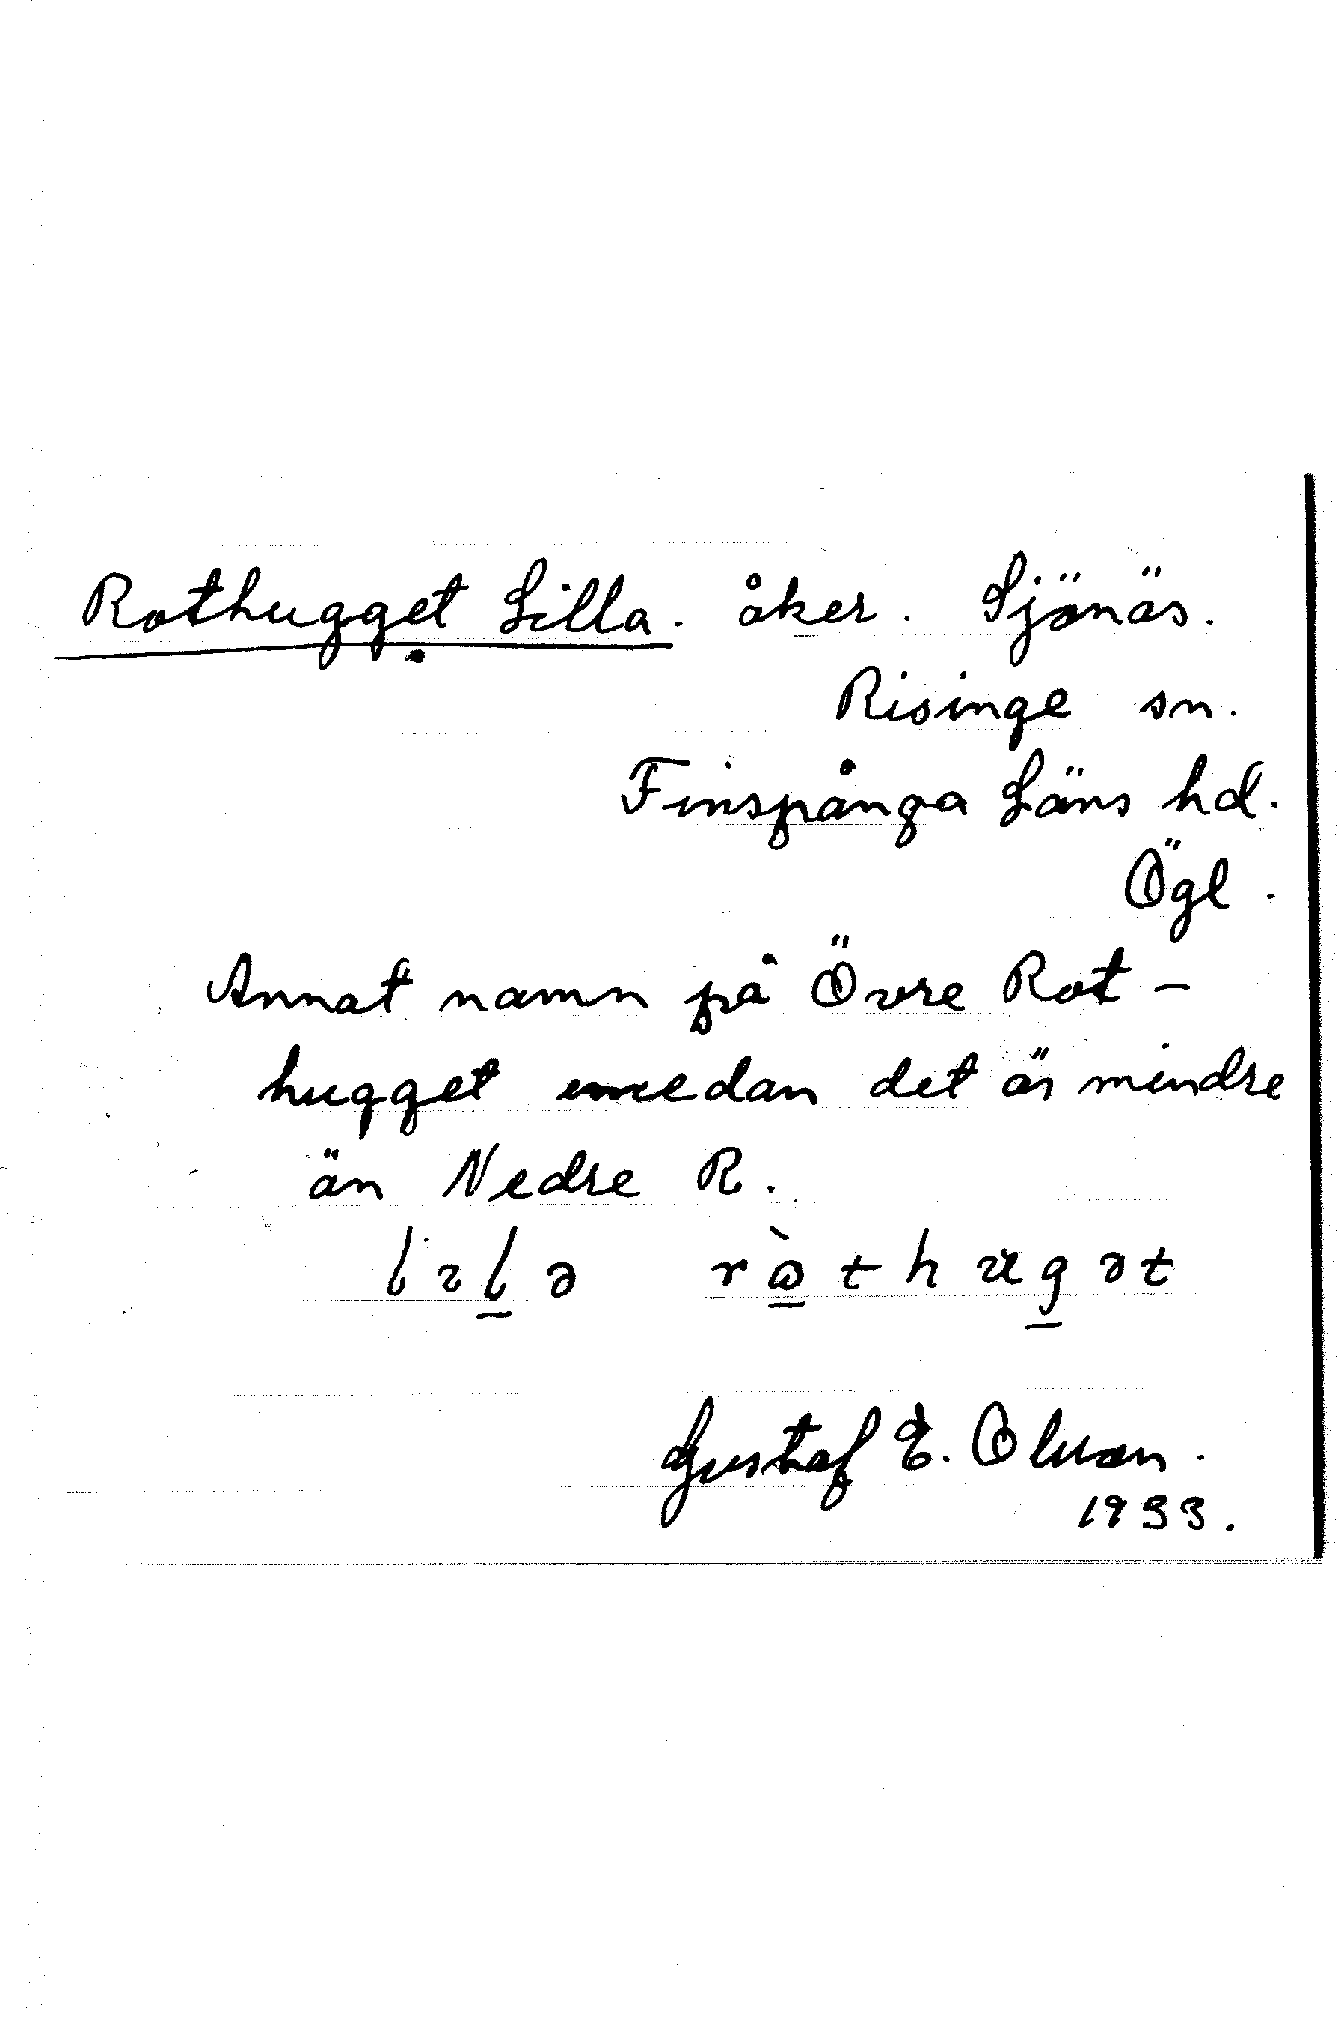 Rothugget Lilla. åker. Sjönäs.
Risinge sn.
Finspånga Läns hd.
Ögl.
Annat namn på Övre Rot-
hugget emedan det är mindre
än Nedre R.
lɩlə ròthugət
Gustaf E. Olman.
1933.